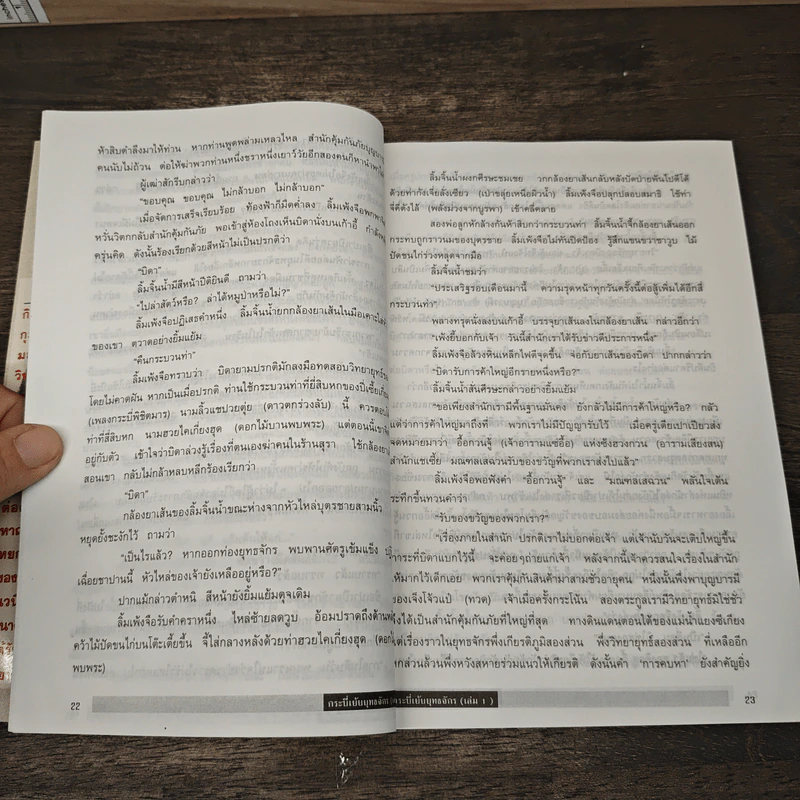 ห้าสิบตำลึงมาให้ท่าน หากท่านพูดพล่ามเหลวไหล สำนักคุ้มกันภัย
คนนับไม่ถ้วน ต่อให้ฆ่าพวกท่านหนึ่งชราหนึ่งเยาว์วัยอีกสองคนก็หา
ผู้เฒ่าสักรีบกล่าวว่า
“ขอบคุณ ขอบคุณ ไม่กล้าบอก ไม่กล้าบอก”
เมื่อจัดการเสร็จเรียบร้อย ท้องฟ้าก็มืดค่ำลง ลิ้มเพ้งจือ
หวั่นวิตกกลับสำนักคุ้มกันภัย พอเข้าสู่ห้องโถงเห็นบิดานั่งบนเก้าอี้
ครุ่นคิด ดังนั้นร้องเรียกด้วยสีหน้าไม่เป็นปรกติว่า
“บิดา”
ลิ้มจิ้นน้ำมีสีหน้าปีติยินดี ถามว่า
“ไปล่าสัตว์หรือ? ล่าได้หมูป่าหรือไม่?”
ลิ้มเพ้งจือปฏิเสธคำหนึ่ง ลิ้มจิ้นน้ำยกกล้องยาเส้นในมือเคาะ
ของเขา ตวาดอย่างยิ้มแย้ม
“คืนกระบวนท่า”
ลิ้มเพ้งจือทราบว่า บิดายามปรกติมักลงมือทดสอบวิทยายุทธ์
โดยไม่คาดฝัน หากเป็นเมื่อปรกติ ท่านใช้กระบวนท่าที่ยี่สิบหกของ
(เพลงกระบี่พิชิตมาร) นามลิ้วแชปวยตุ่ย (ดาวตกร่วงลับ) นี้
ท่าที่สี่สิบหก นามฮวยไคเกี่ยงฮุด (ดอกไม้บานพบพระ) แต่ตอนนี้เขา
อยู่กับตัว เข้าใจว่าบิดาล่วงรู้เรื่องที่ตนเองฆ่าคนในร้านสุรา ใช้กล้องยา
สอนเขา กลับไม่กล้าหลบหลีกร้องเรียกว่า
“บิดา”
กล้องยาเส้นของลิ้มจิ้นน้ำขณะห่างจากหัวไหล่บุตรชายสามนิ้ว
หยุดยั้งชะงักไว้ ถามว่า
“เป็นไรแล้ว? หากออกท่องยุทธจักร พบพานศัตรูเข้มแข็ง
เฉื่อยชาปานนี้ หัวไหล่ของเจ้ายังเหลืออยู่หรือ?”
ปากแม้กล่าวตำหนิ สีหน้ายังยิ้มแย้มดุจเดิม
ลิ้มเพ้งจือรับคำคราหนึ่ง ไหล่ซ้ายลดวูบ อ้อมปราดถึงด้าน
คว้าไม้ปัดขนไก่บนโต๊ะเตี้ยขึ้น จี้ใส่กลางหลังด้วยท่าฮวยไคเกี่ยงฮุด
พบพระ)
22
กระบี่เย้ยยุทธจักร
ลิ้มจิ้นน้ำผงกศีรษะชมเชย วกกล้องยาเส้นกลับหลังปัดป่ายพ้นไปตีโต้
ด้วยท่ากังเจี้ยลังเซียว (เป่าขลุ่ยเหนือผิวน้ำ) ลิ้มเพ้งจือปลุกปลอบสมาธิ ใช้ท่า
จี้คี่ตังไล้ (พลังม่วงจากบูรพา) เข้าคลี่คลาย
สองพ่อลูกหักล้างกันห้าสิบกว่ากระบวนท่า ลิ้มจิ้นน้ำจี้กล้องยาเส้นออก
กระทบถูกราวนมของบุตรชาย ลิ้มเพ้งจือไม่ทันปิดป้อง รู้สึกแขนขวาชาวูบ ไม้
ปัดขนไก่ร่วงหลุดจากมือ
ลิ้มจิ้นน้ำชมว่า
“ประเสริฐรอบเดือนมานี้ ความรุดหน้าทุกวันครั้งนี้ต่อสู้เพิ่มได้อีกสี่
กระบวนท่า”
พลางทรุดนั่งลงบนเก้าอี้ บรรจุยาเส้นลงในกล้องยาเส้น กล่าวอีกว่า
“เพ้งยี้บอกกับเจ้า วันนี้สำนักเราได้รับข่าวดีประการหนึ่ง”
ลิ้มเพ้งจือล้วงหินเหล็กไฟตีจุดขึ้น จ่อกับยาเส้นของบิดา ปากกล่าวว่า
“บิดารับการค้าใหญ่อีกรายหนึ่งหรือ?”
ลิ้มจิ้นน้ำสั่นศีรษะกล่าวอย่างยิ้มแย้ม
“ขอเพียงสำนักเรามีพื้นฐานมั่นคง ยังกลัวไม่มีการค้าใหญ่หรือ? กลัว
แต่ว่าการค้าใหญ่มาถึงที่ พวกเราไม่มีปัญญารับไว้ เมื่อครู่เตียเปาเปียวส่ง
จดหมายมาว่า อื้อกวนจู้ (เจ้าอารามแซ่อื้อ) แห่งซึงฮวงกวน (อารามเสียงสน)
สำนักแชเซี้ย มณฑลเสฉวนรับของขวัญที่พวกเราส่งไปแล้ว”
ลิ้มเพ้งจือพอฟังคำ “อื้อกวนจู้” และ “มณฑลเสฉวน” พลันใจเต้น
ระทึกขึ้นทวนคำว่า
“รับของขวัญของพวกเรา?”
“เรื่องภายในสำนัก ปรกติเราไม่บอกต่อเจ้า แต่เจ้านับวันจะเติบใหญ่ขึ้น
ภาระที่บิดาแบกไว้นี้ จะค่อยๆถ่ายแก่เจ้า หลังจากนี้เจ้าควรสนใจเรื่องในสำนัก
ให้มากไว้เด็กเอย พวกเราคุ้มกันสินค้ามาสามชั่วอายุคน หนึ่งนั้นพึ่งพาบุญบารมี
ของเจ็งโจ้วแป๋ (ทวด) เจ้าเมื่อครั้งกระโน้น สองตระกูลเรามีวิทยายุทธ์มิใช่ชั่ว
จึงได้เป็นสำนักคุ้มกันภัยที่ใหญ่ที่สุด ทางดินแดนตอนใต้ของแม่น้ำแยงซีเกียง
แต่เรื่องราวในยุทธจักรพึ่งเกียรติภูมิสองส่วน พึ่งวิทยายุทธ์สองส่วน ที่เหลืออีก
หกส่วนล้วนพึ่งหวังสหายร่วมแนวให้เกียรติ ดังนั้นคำ ‘การคบหา’ ยังสำคัญยิ่ง
กระบี่เย้ยยุทธจักร (เล่ม 1 )
23